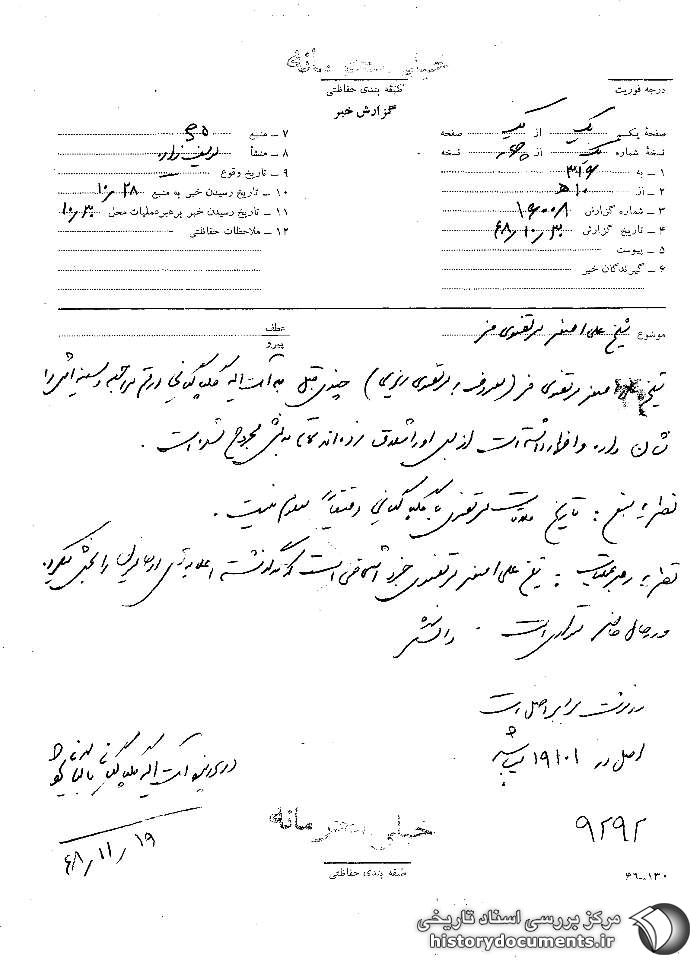 خیلی محرمانه
طبقه بندی حفاظتی
درجه فوریت
گزارش خبر
صفحهٔ یک از یک صفحه
نسخهٔ شماره یک از نسخه
۱ ـ به ۳۱۶
۲ ـ از ۱۰ ﻫ
۳ ـ شماره گزارش
۴ ـ تاریخ گزارش ۴۸٫۱۰٫۳۰
۵ ـ پیوست
۶ ـ گیرندگان خبر
۷ ـ منبع
۸ ـ منشأ
۹ ـ تاریخ وقوع
۱۰ ـ تاریخ رسیدن خبر به منبع ۱۰٫۲۸
۱۱ ـ تاریخ رسیدن خبر به رهبر عملیات محل ۱۰٫۳۰
۱۲ ـ ملاحظات حفاظتی
موضوع شیخ علی اصغر مرتضوی فر
عطف
پیرو
شیخ علی اصغر مرتضوی فر (معروف به مرتضوی) چندی قبل به آیت اله گلپایگانی در قم مراجعه و سینه اش را
نشان داده و اظهار داشته است از بس او را شلاق زده اند تمام بدنش مجروح شده است .
نظریه منبع : تاریخ ملاقات مرتضوی با گلپایگانی دقیقاً معلوم نیست .
نظریه رهبر عملیات : شیخ علی اصغر مرتضوی جزو اشخاصی است که در گذشته اعلامیه های را پخش میکرد
و در حال حاضر متواری است . دانش
رونوشت برابر اصل است
اصل در ۱۹۱۰۱ بایگانی شود
در پرونده آیت اله گلپایگانی بایگانی شود
۴۸٫۱۱٫۱۹
۹۲۹۲
خیلی محرمانه
طبقه بندی حفاظتی
۴۶-۱۳۰
مرکز بررسی اسناد تاریخی
historydocuments.ir